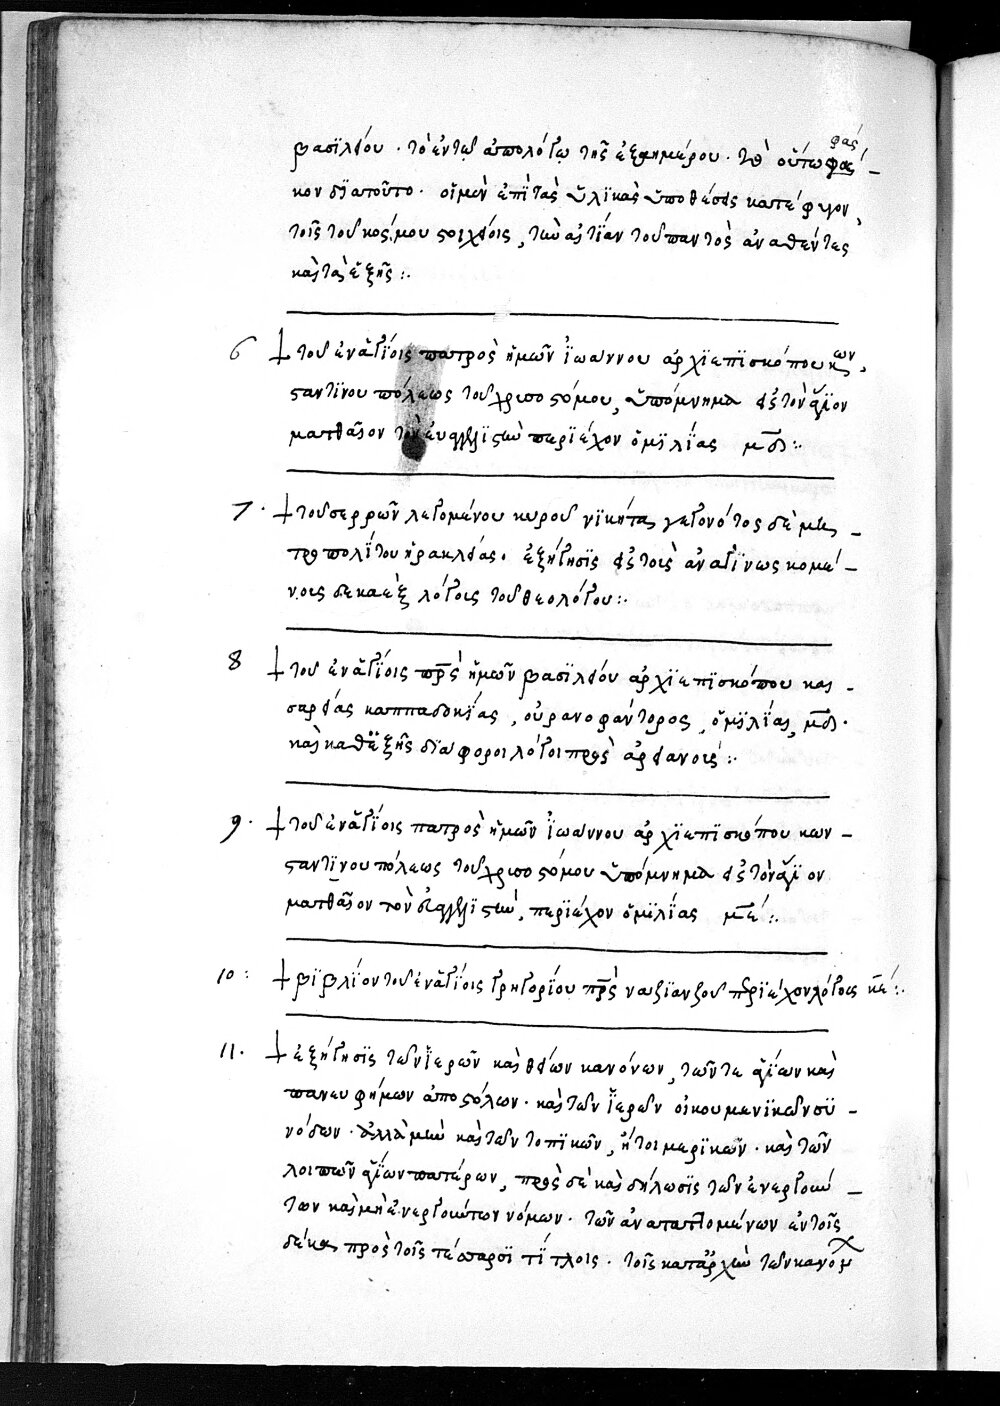 φάσ
βασϊλείου · τὸ ἐν τῷ ἀπολόγῳ τῆς ἑξαημέρου · τὸ οὕτω φάσ –
κον διατοῦτο · οἱ μὲν ἐπὶ τὰς ὑλϊκὰς ὑποθέσεις κατέφυγον,
τοῖς τοῦ κόσμου στοιχείοις, τὴν αἰτίαν τοῦ παντὸς ἀναθέντες
καὶ τὰ ἑξῆς :·
6 † τοῦ ἐν ἁγΐοις πατρὸς ἡμῶν ἰωάννου ἀρχϊεπϊσκόπου κων
σταντϊνου πόλεως τοῦ χρυσοστόμου, ὑπόμνημα εἰς τὸν ἅγϊον
ματθαῖον τὸν εὐαγγελϊστὴν περϊέχον ὁμϊλΐας μδ :·
7 · † τοῦ σερρῶν λεγομένου κυροῦ νϊκήτα, γεγονότος δὲ μη –
τροπολΐτου ἡρακλείας · ἐξήγησϊς εἰς τοὺς ἀναγϊνωσκομέ –
νους δεκαὲξ λόγους τοῦ θεολόγου :·
8 † τοῦ ἐν ἁγΐοις πρς ἡμῶν βασϊλείου ἀρχϊεπϊσκόπου και –
σαρείας καππαδοκΐας, οὐρανοφάντορος, ὁμϊλΐαι, μδ ·
καὶ καθεξῆς δϊάφοροι λόγοι πρὸς ἀρειανούς :·
9 · † τοῦ ἐν ἁγΐοις πατρὸς ἡμῶν ἰωάννου ἀρχϊεπϊσκόπου κων –
σταντϊνου πόλεως τοῦ χρυσοστόμου ὑπόμνημα εἰς τὸν ἅγϊον
ματθαῖον τὸν εὐαγγελϊστὴν, περϊέχον ὁμϊλΐας με :·
10 : † βϊβλΐον τοῦ ἐν ἁγΐοις γρηγορΐου πρς ναζϊανζοῦ περϊέχον λόγους κε :·
11 · † ἐξήγησϊς τῶν ἱερῶν καὶ θείων κανόνων, τῶν τε ἁγΐων καὶ
πανευφήμων ἀποστόλων · καὶ τῶν ἱερῶν οἰκουμενϊκῶν συ –
νόδων · ἀλλὰ μὴν καὶ τῶν τοπϊκῶν, ἤτοι μερϊκῶν · καὶ τῶν
λοιπῶν ἁγΐων πατέρων, πρὸς δὲ καὶ δήλωσϊς τῶν ἐνεργούν –
των καὶ μὴ ἐνεργούντων νόμων · τῶν ἀναταττομένων ἐν τοῖς
δέκα πρὸς τοῖς τέσσαρσϊ τΐτλοις · τοῖς κατ᾽ἀρχὴν τῶν κανόν